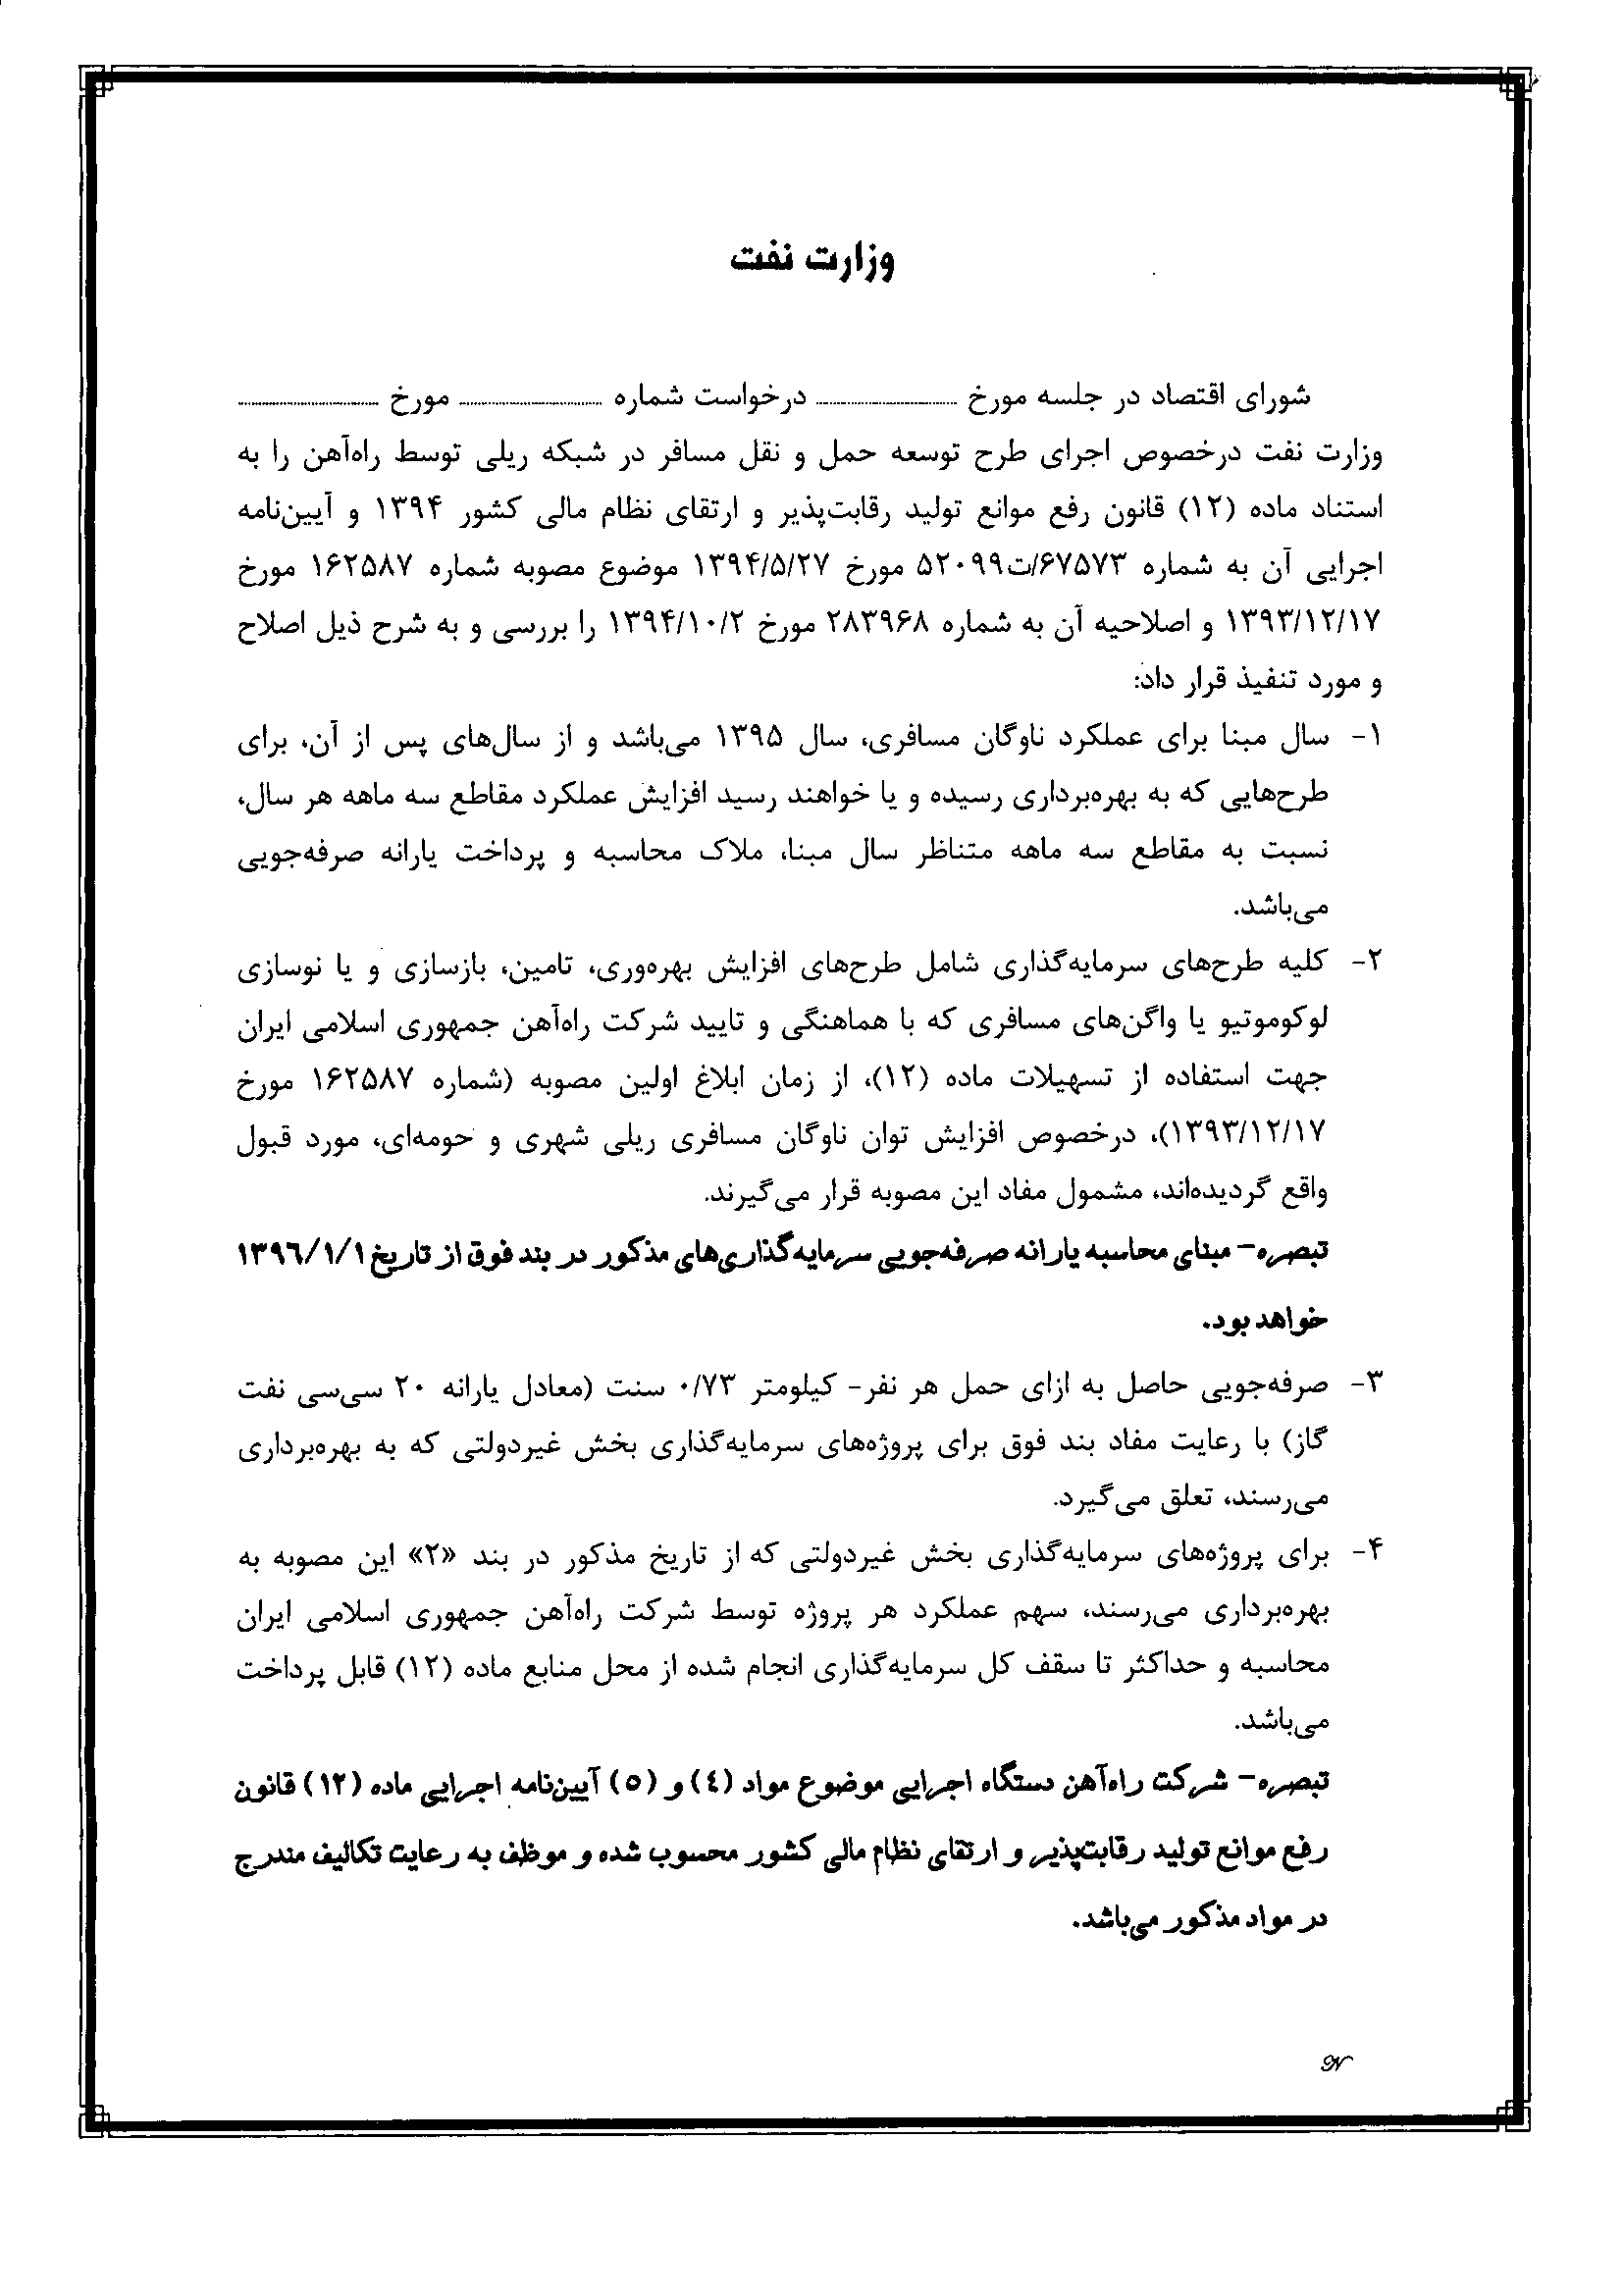 وزارت نفت
شورای اقتصاد در جلسه مورخ ........................ درخواست شماره ........................ مورخ ........................
وزارت نفت درخصوص اجرای طرح توسعه حمل و نقل مسافر در شبکه ریلی توسط راه‌آهن را به
استناد ماده (۱۲) قانون رفع موانع تولید رقابت‌پذیر و ارتقای نظام مالی کشور ۱۳۹۴ و آیین‌نامه
اجرایی آن به شماره ۶۷۵۷۳/ت۵۲۰۹۹ مورخ ۱۳۹۴/۵/۲۷ موضوع مصوبه شماره ۱۶۲۵۸۷ مورخ
۱۳۹۳/۱۲/۱۷ و اصلاحیه آن به شماره ۲۸۳۹۶۸ مورخ ۱۳۹۴/۱۰/۲ را بررسی و به شرح ذیل اصلاح
و مورد تنفیذ قرار داد:
۱- سال مبنا برای عملکرد ناوگان مسافری، سال ۱۳۹۵ می‌باشد و از سال‌های پس از آن، برای
طرح‌هایی که به بهره‌برداری رسیده و یا خواهند رسید افزایش عملکرد مقاطع سه ماهه هر سال،
نسبت به مقاطع سه ماهه متناظر سال مبنا، ملاک محاسبه و پرداخت یارانه صرفه‌جویی
می‌باشد.
۲- کلیه طرح‌های سرمایه‌گذاری شامل طرح‌های افزایش بهره‌وری، تامین، بازسازی و یا نوسازی
لوکوموتیو یا واگن‌های مسافری که با هماهنگی و تایید شرکت راه‌آهن جمهوری اسلامی ایران
جهت استفاده از تسهیلات ماده (۱۲)، از زمان ابلاغ اولین مصوبه (شماره ۱۶۲۵۸۷ مورخ
۱۳۹۳/۱۲/۱۷)، درخصوص افزایش توان ناوگان مسافری ریلی شهری و حومه‌ای، مورد قبول
واقع گردیده‌اند، مشمول مفاد این مصوبه قرار می‌گیرند.
تبصره- مبنای محاسبه یارانه صرفه‌جویی سرمایه‌گذاری‌های مذکور در بند فوق از تاریخ ۱۳۹۶/۱/۱
خواهد بود.
۳- صرفه‌جویی حاصل به ازای حمل هر نفر- کیلومتر ۰/۷۳ سنت (معادل یارانه ۲۰ سی‌سی نفت
گاز) با رعایت مفاد بند فوق برای پروژه‌های سرمایه‌گذاری بخش غیردولتی که به بهره‌برداری
می‌رسند، تعلق می‌گیرد.
۴- برای پروژه‌های سرمایه‌گذاری بخش غیردولتی که از تاریخ مذکور در بند «۲» این مصوبه به
بهره‌برداری می‌رسند، سهم عملکرد هر پروژه توسط شرکت راه‌آهن جمهوری اسلامی ایران
محاسبه و حداکثر تا سقف کل سرمایه‌گذاری انجام شده از محل منابع ماده (۱۲) قابل پرداخت
می‌باشد.
تبصره- شرکت راه‌آهن دستگاه اجرایی موضوع مواد (۴) و (۵) آیین‌نامه اجرایی ماده (۱۲) قانون
رفع موانع تولید رقابت‌پذیر و ارتقای نظام مالی کشور محسوب شده و موظف به رعایت تکالیف مندرج
در مواد مذکور می‌باشد.